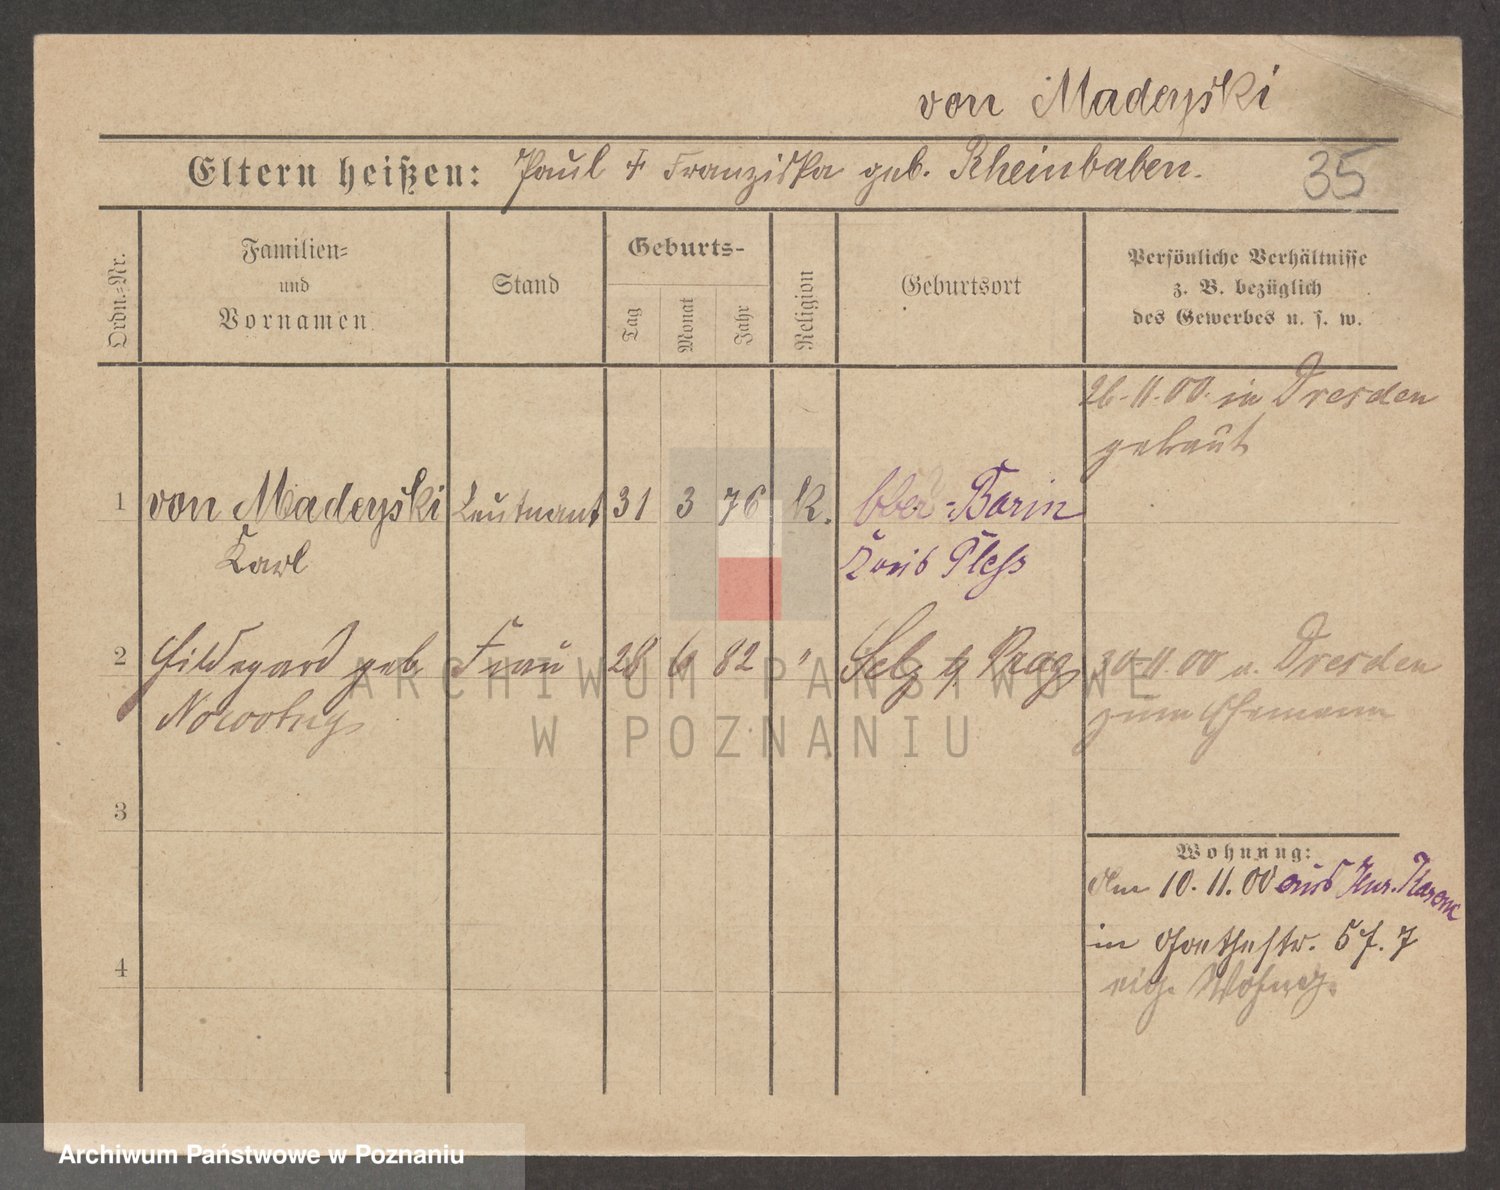 von Madeyski
Eltern heißen: Paul & Franziska geb. Rheinbaben.
35
Ordn.-Nr.
Familien-
und
Vornamen
Stand
Geburts-
Tag
Monat
Jahr
Religion
Geburtsort
Persönliche Verhältnisse
z. B. bezüglich
des Gewerbes u. s. w.
26.11.00. in Dresden
getraut
1 von Madeyski Leutnant 31 3 76 K. Ober-Borin
Karl Kreis Pless
2 Hildegard geb. Frau 28 6 82 " Selz Prag 30.11.00 v. Dresden
Nowotny zum Ehemann
3
Wohnung:
Am 10.11.00 aus
in Goethestr. 5 f. 7
4
eig. Wohng.
ARCHIWUM PAŃSTWOWE
W POZNANIU
Archiwum Państwowe w Poznaniu